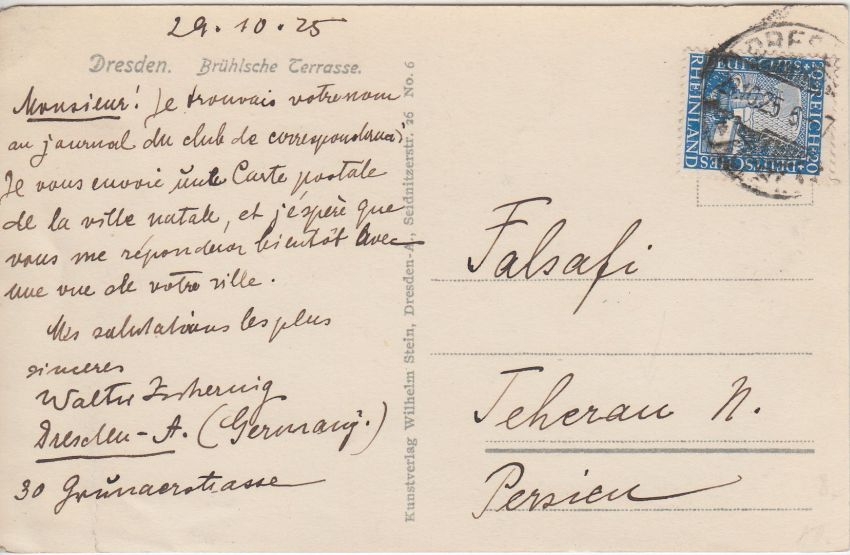 29.10.25
Dresden. Brühlsche Terrasse.
Monsieur! Je trouvais votre nom
au journal du club de correspondance
Je vous envoie une Carte postale
de la ville natale, et j'éspère que
vous me réponderez bientôt avec
une vue de votre ville.
Mes salutations les plus
sinceres
Walter
Dresden-A. (Germany.)
30 Grunaerstrasse
Kunstverlag Wilhelm Stein, Dresden-A., Seidnitzerstr. 26 No. 6
DRESDEN
20 DEUTSCHES REICH 20
RHEINLAND
Falsafi
Teheran N.
Persien